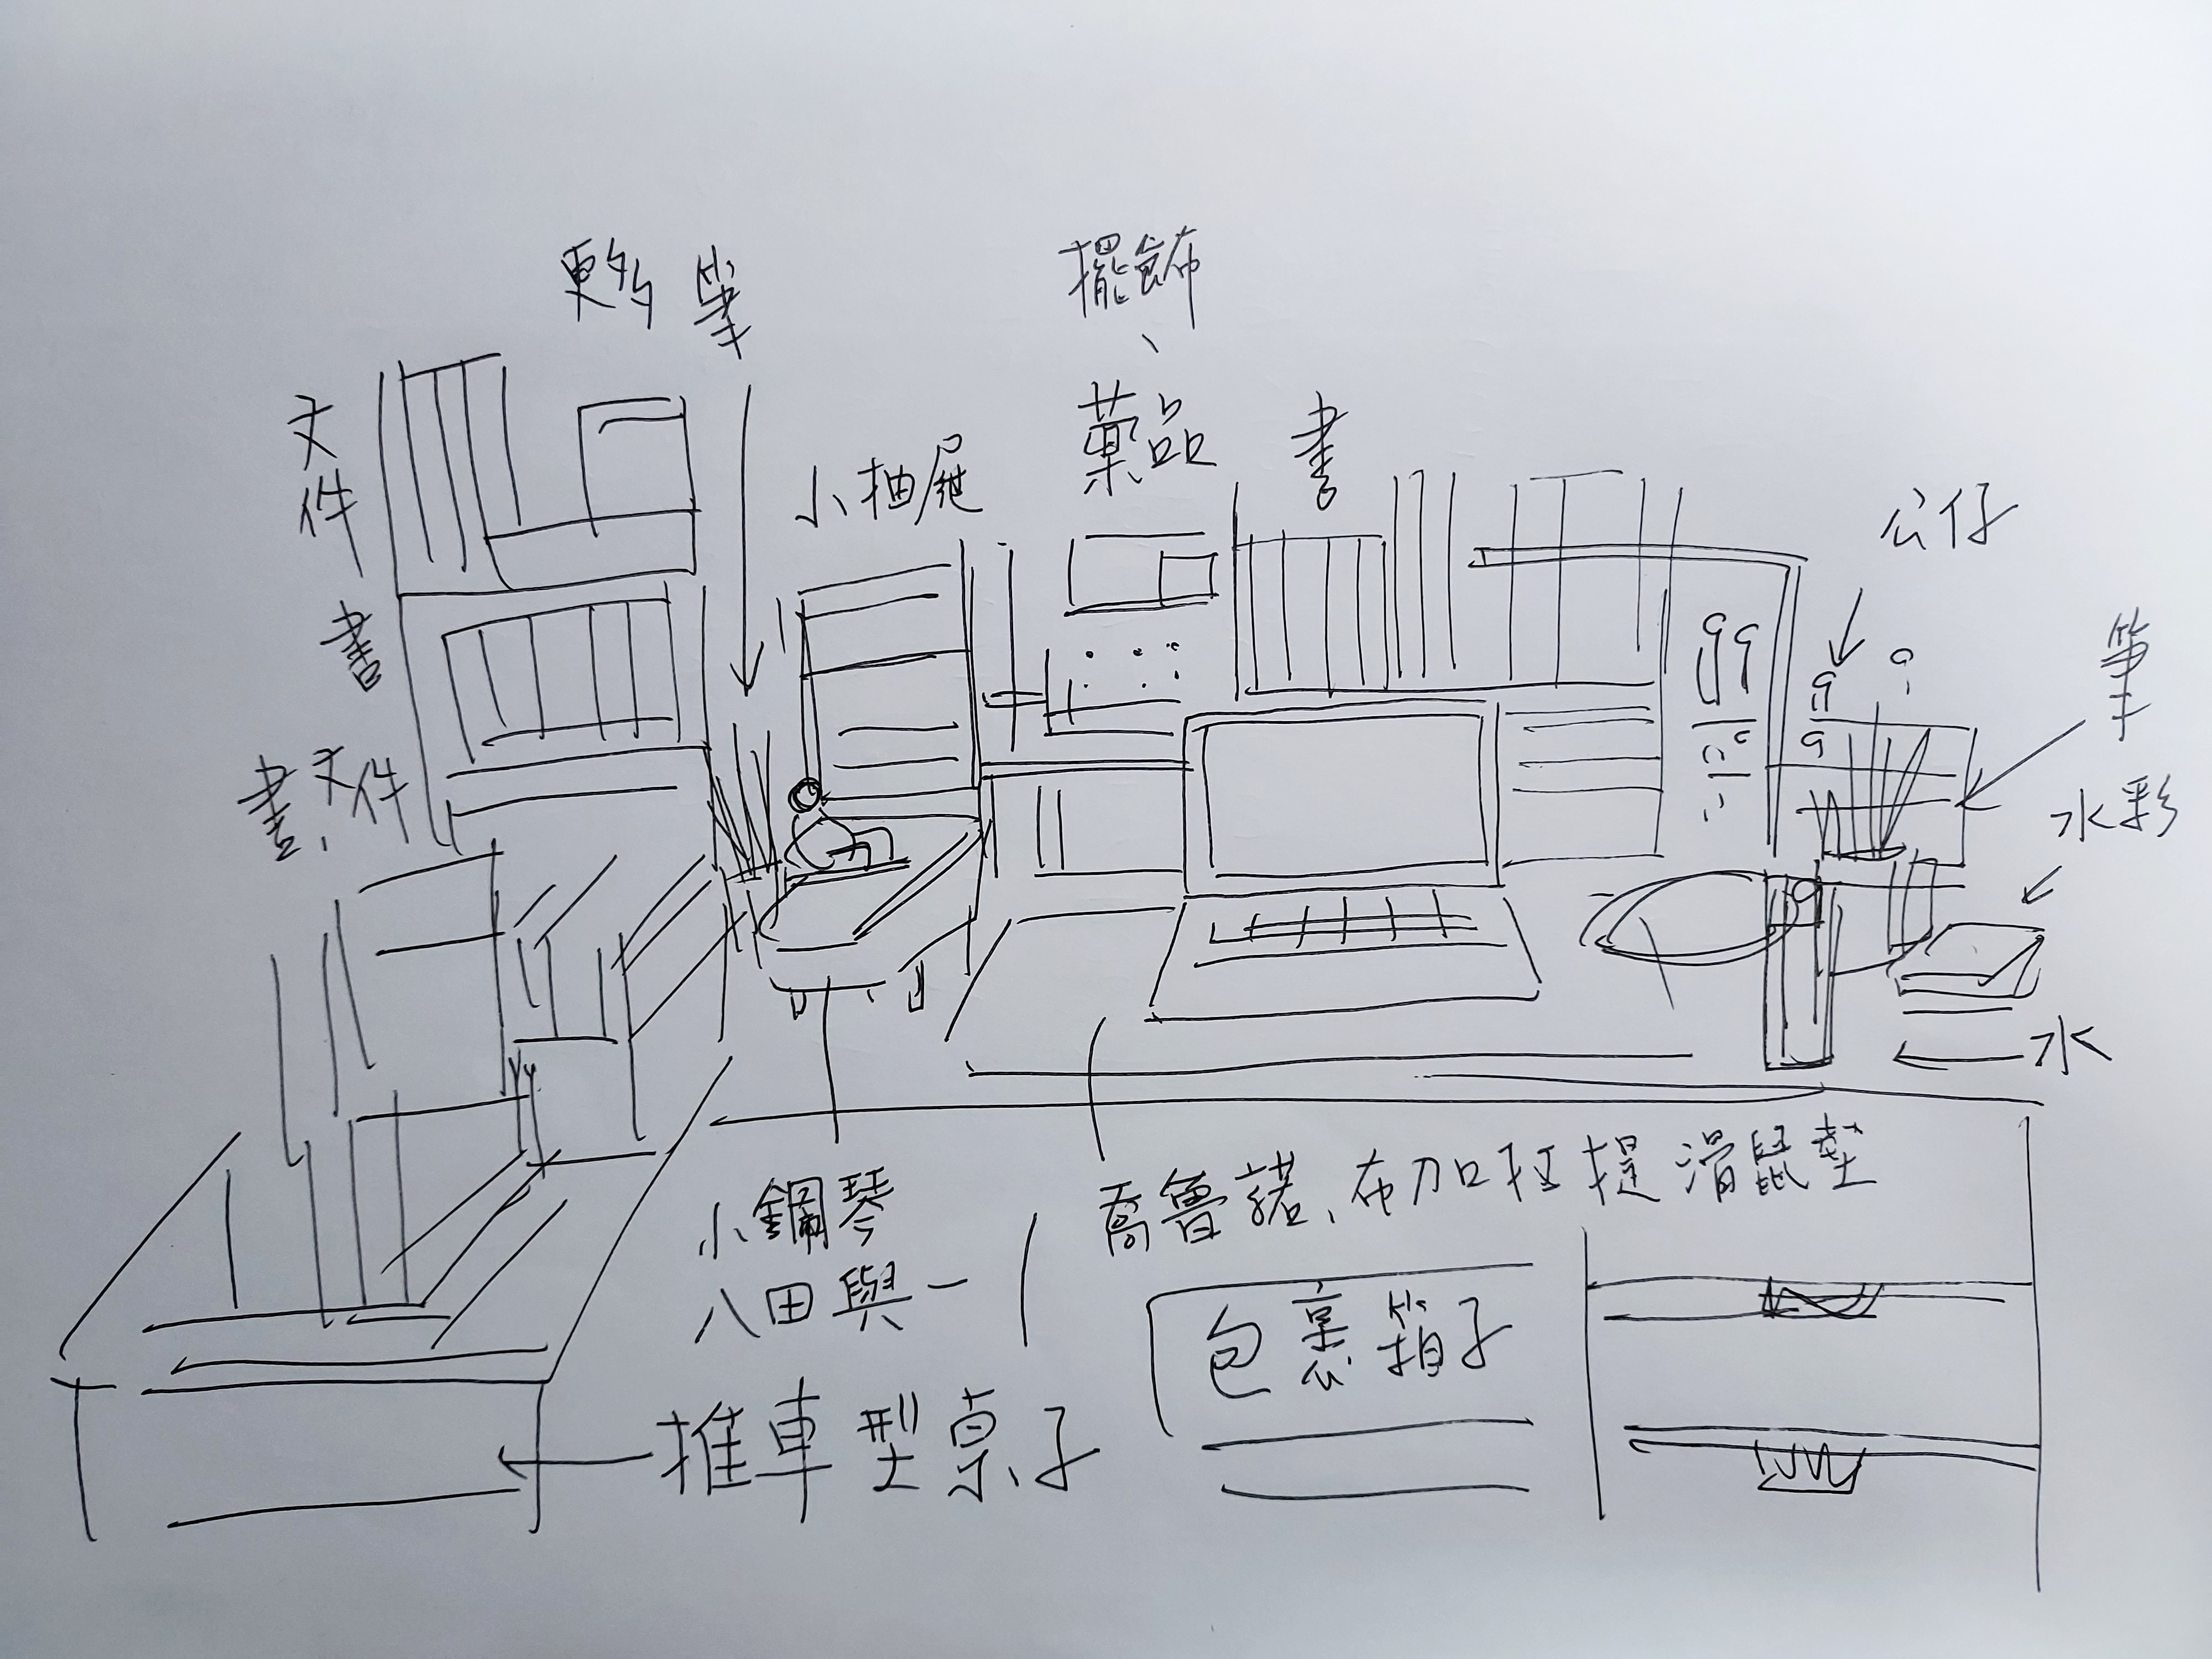 更多 筆
擺飾、
藥品
書
文件
小抽屜
公仔
書
筆
書、文件
水彩
水
小鋼琴
八田與一
喬魯諾、布加拉提滑鼠墊
包裹箱子
推車型桌子